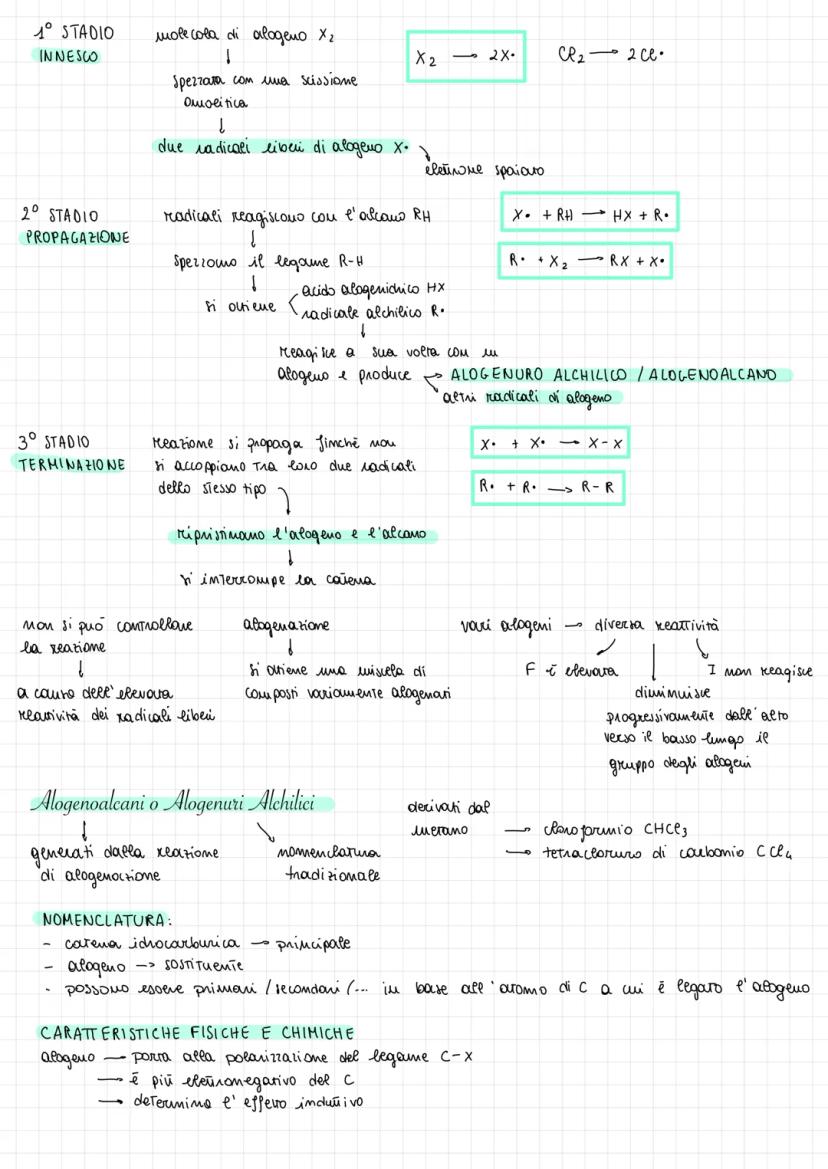 1° STADIO
INNESCO
molecola di alogeno X₂
↓
spezzata con una scissione
omolitica
↓
due radicali liberi di alogeno X•
elettrone spaiato
X₂ → 2X•
Cl₂ → 2Cl•
2° STADIO
PROPAGAZIONE
radicali reagiscono con l'alcano RH
↓
spezzano il legame R-H
↓
si ottiene
acido alogenidrico HX
radicale alchilico R•
↓
reagisce a sua volta con un
alogeno e produce → ALOGENURO ALCHILICO / ALOGENOALCANO
altri radicali di alogeno
X• + RH → HX + R•
R• + X₂ → RX + X•
3° STADIO
TERMINAZIONE
reazione si propaga finchè non
si accoppiano tra loro due radicali
dello stesso tipo
ripristinano l'alogeno e l'alcano
↓
si interrompe la catena
X• + X• → X-X
R• + R• → R-R
non si può controllare
la reazione
↓
a causa dell'elevata
reattività dei radicali liberi
alogenazione
↓
si ottiene una miscela di
composti variamente alogenati
vari alogeni → diversa reattività
F è elevata
diminuisce
progressivamente dall'alto
verso il basso lungo il
gruppo degli alogeni
I non reagisce
Alogenoalcani o Alogenuri Alchilici
generati dalla reazione
di alogenazione
nomenclatura
tradizionale
derivati dal
metano
→ cloroformio CHCl₃
→ tetracloruro di carbonio CCl₄
NOMENCLATURA:
- catena idrocarburica → principale
- alogeno → sostituente
- possono essere primari / secondari /... in base all'atomo di C a cui è legato l'alogeno
CARATTERISTICHE FISICHE E CHIMICHE
alogeno → porta alla polarizzazione del legame C-X
→ è più elettronegativo del C
→ determina l'effetto induttivo